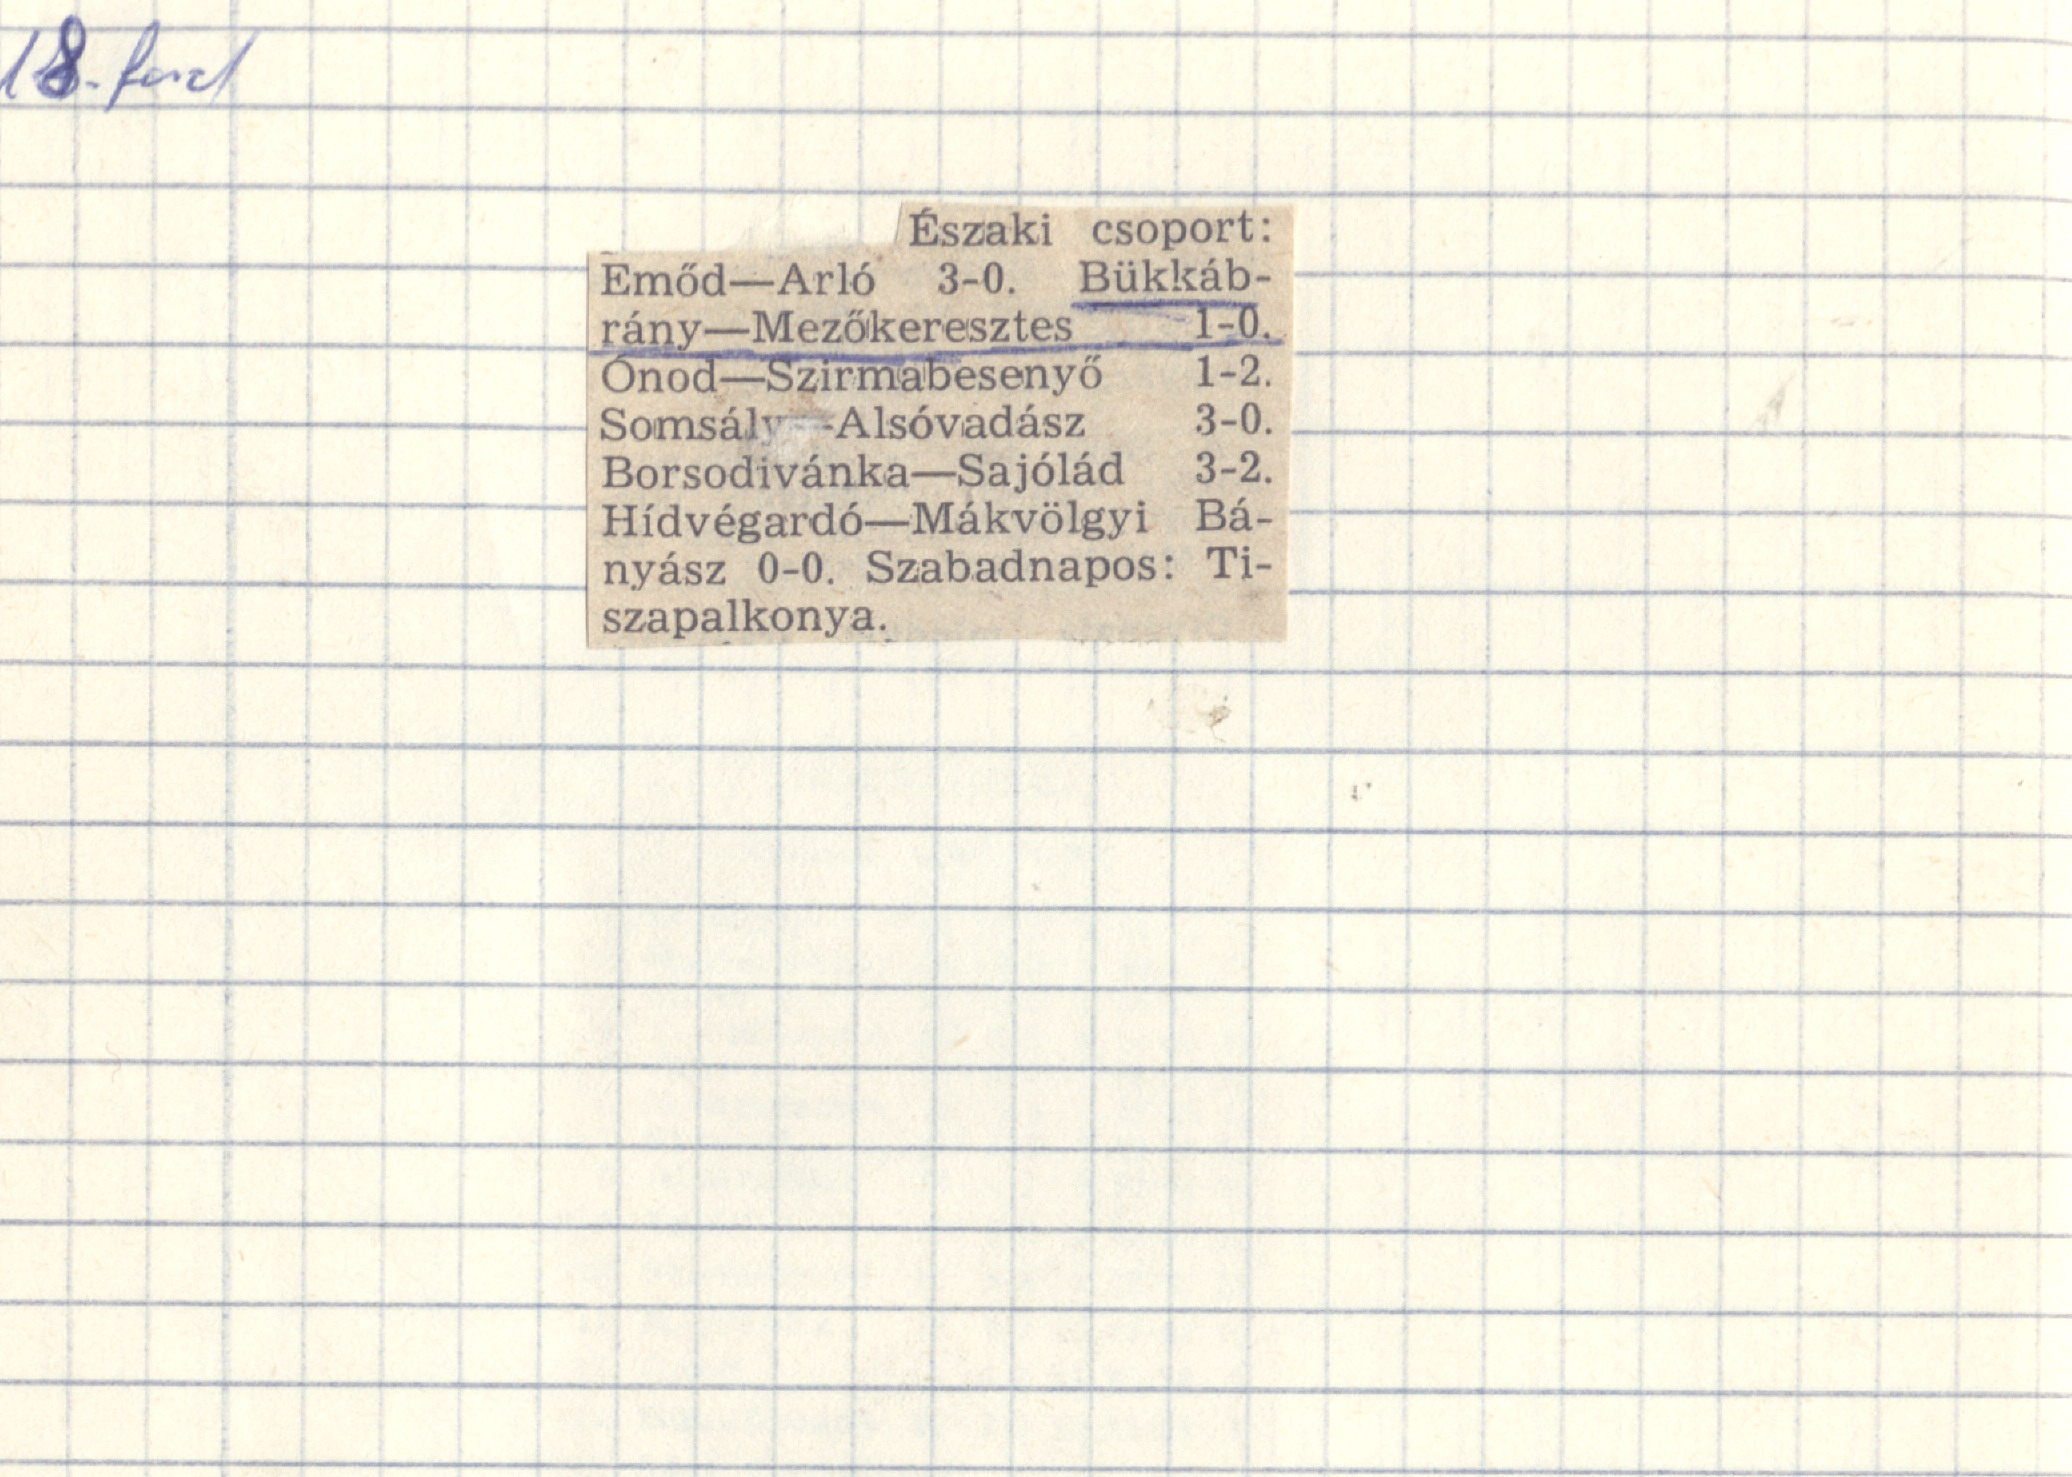 18. ford
Északi csoport:
Emőd—Arló 3-0. Bükkáb-
rány—Mezőkeresztes 1-0.
Ónod—Szirmabesenyő 1-2.
Somsály—Alsóvadász 3-0.
Borsodivánka—Sajólád 3-2.
Hídvégardó—Mákvölgyi Bá-
nyász 0-0. Szabadnapos: Ti-
szapalkonya.